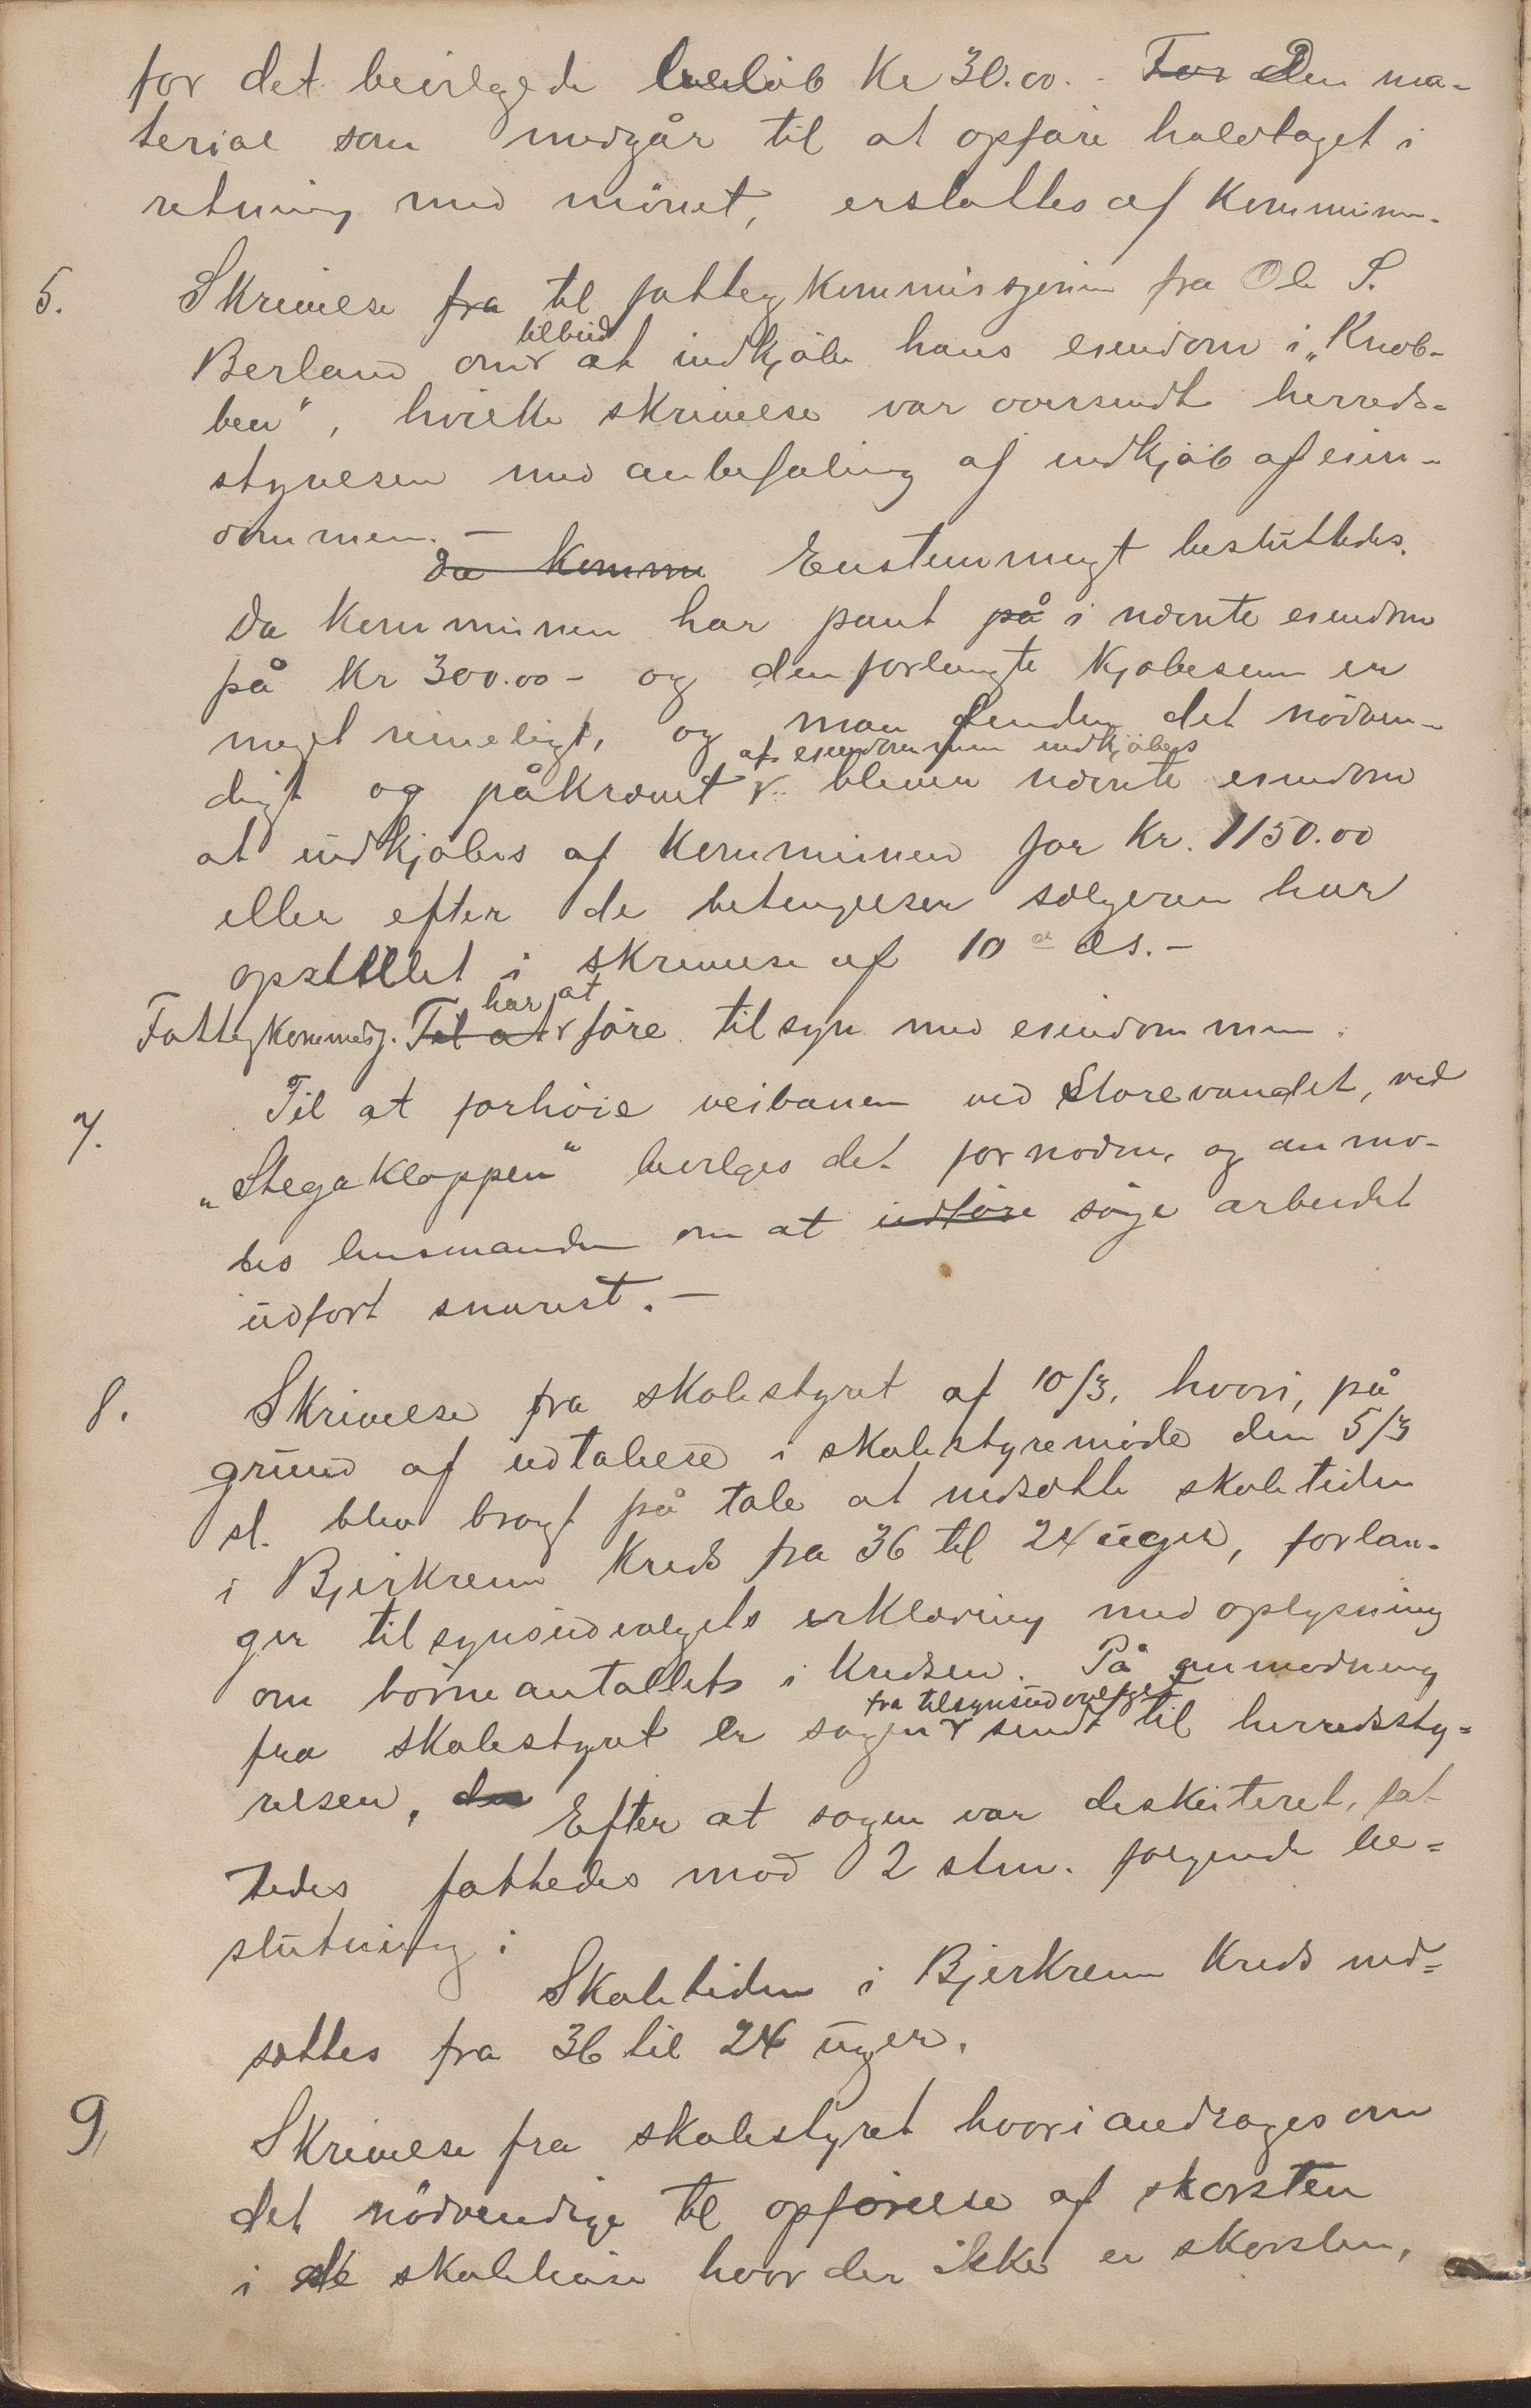 for det bevilgede beløb Kr 30.00. - For Den ma-
terial som medgår til at opføre halvtaget i
retning med mönet, erstattes af Kommunen.
5. Skrivelse fra til fattigkommissjonen fra Ole S.
tilbud
Berland om at indkjøbe hans eiendom i „Knob-
ben“, hvilke skrivelse var oversendt herreds-
styrelsen med anbefaling af indkjøb af eien-
dommen. -
Da Kommu Enstemmigt besluttedes.
Da Kommunen har pant på i nævnte eiendom
på Kr 300.00 - og den forlangte Kjøbesum er
meget rimeligt, og man finder det nödven-
at eiendommen indkjøbes
digt og påkrævet blever nævnte eiendom
at indkjøbes af Kommunen for Kr. 1150.00
eller efter de betingelser sælgeren har
opstillet i skrivelse af 10de ds. -
har at
Fattigkommisj. Til at føre tilsyn med eiendommen.
7. Til at forhöie veibanen ved Storevandet, ved
„Stegakloppen“ bevilges det fornødne, og anmo-
des lensmanden om at udføre søge arbeidet
udført snarest. -
8. Skrivelse fra skolestyret af 10/3, hvori, på
grund af udtalelse i skolestyremöde den 5/3
sl. blev bragt på tale at nedsætte skoletiden
i Bjerkreim Kreds fra 36 til 24 uger, forlan-
ger tilsynsudvalgets erklæring med oplysning
om börneantallets i Kredsen. På anmodning
fra tilsynsudvalget
fra skolestyret er sagen sendt til herredssty-
relsen, den Efter at sagen var diskuteret, fat-
tedes fattedes mod 2 stm. følgende be-
slutning:
Skoletiden i Bjerkreim Kreds ned-
sættes fra 36 til 24 uger.
9, Skrivelse fra skolestyret hvori andrages om
det nödvendige til opførelse af skorsten
i de skolehuse hvor der ikke er skorsten,